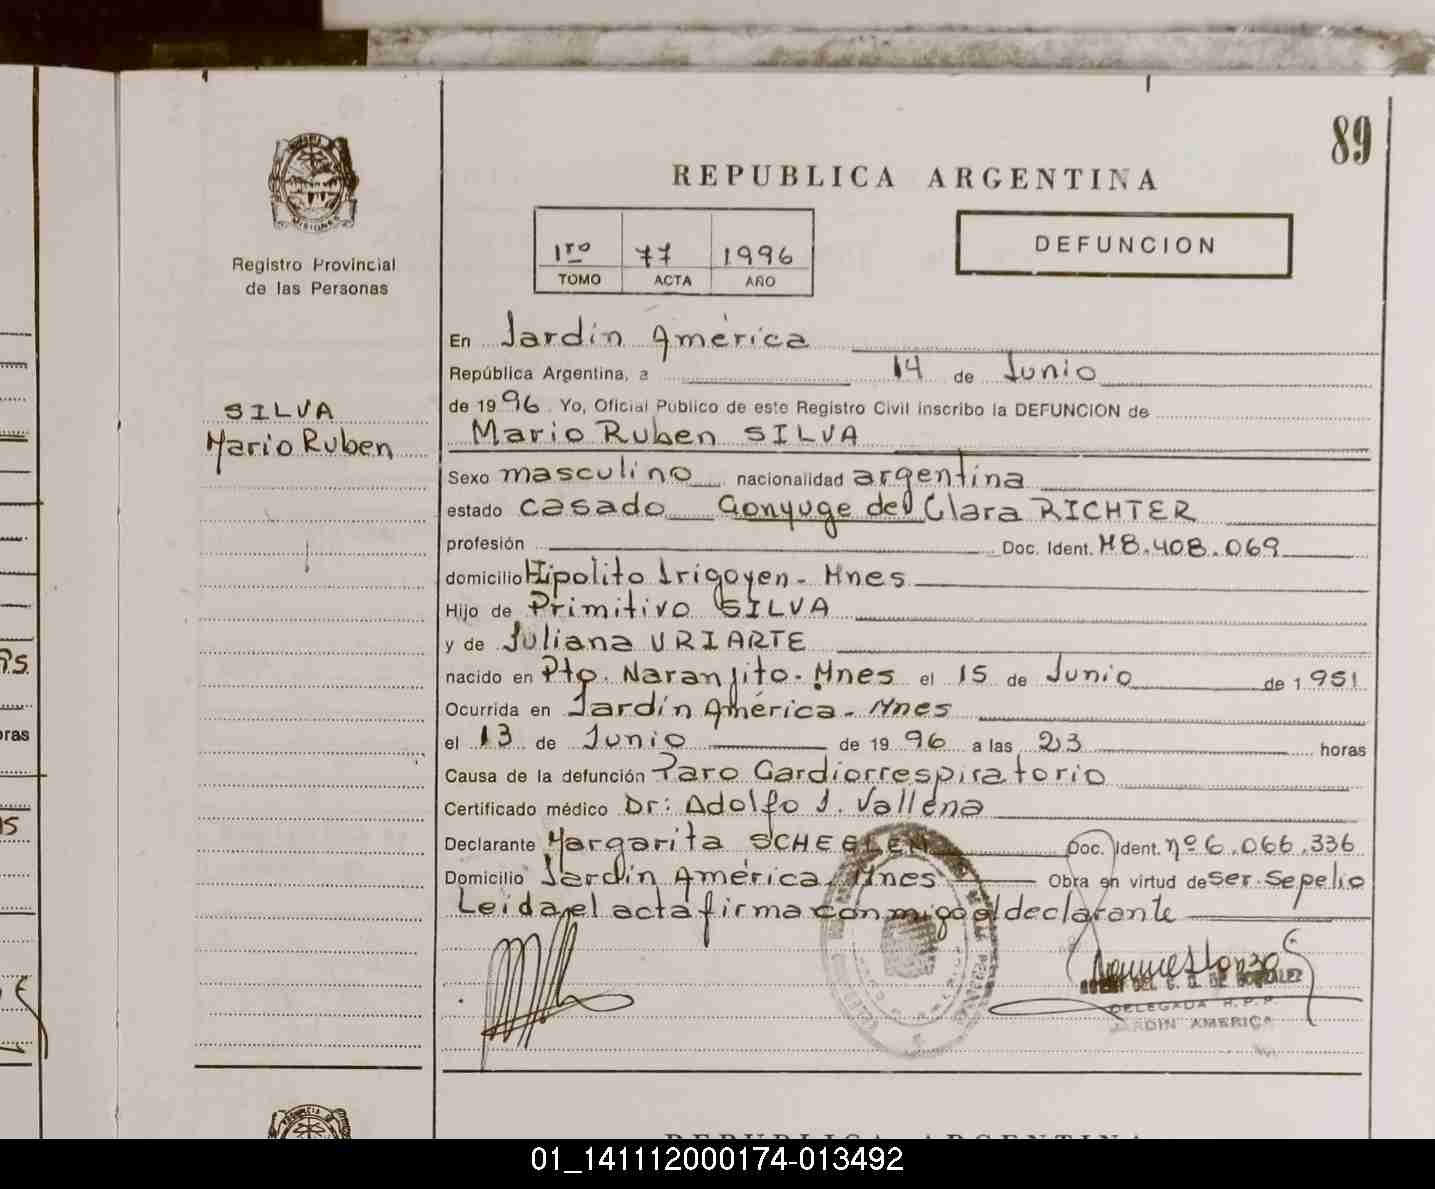 89
REPUBLICA ARGENTINA
1ro 77 1996
TOMO ACTA AÑO
DEFUNCION
Registro Provincial
de las Personas
SILVA
Mario Ruben
En Jardín América
República Argentina, a 14 de Junio
de 1996 Yo, Oficial Público de este Registro Civil inscribo la DEFUNCION de
Mario Ruben SILVA
Sexo masculino nacionalidad argentina
estado casado Conyuge de Clara RICHTER
profesión Doc. Ident. M8.408.069
domicilio Hipolito Irigoyen - Mnes
Hijo de Primitivo SILVA
y de Juliana URIARTE
nacido en Pto. Naranjito - Mnes el 15 de Junio de 1951
Ocurrida en Jardín América - Mnes
el 13 de Junio de 1996 a las 23 horas
Causa de la defunción Paro Cardiorrespiratorio
Certificado médico Dr: Adolfo J. Vallena
Declarante Margarita SCHEELEN Doc. Ident. nº 6.066.336
Domicilio Jardín América. Mnes Obra en virtud de Ser. Sepelio
Leida el acta firma conmigo el declarante
DEL C. G. DE GONZALEZ
DELEGADA R.P.P.
JARDIN AMERICA
REPUBLICA ARGENTINA
01_141112000174-013492